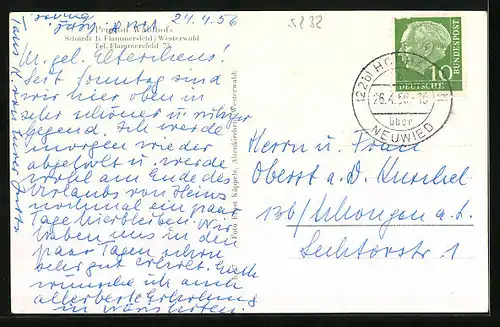 24.4.56
5232
Pension Waldhof
Schürdt b. Flammersfeld/Westerwald
Tel. Flammersfeld 75
M. gel. Elterchens!
Seit Sonntag sind
wir hier oben in
sehr schöner und ruhiger
Gegend. Ich werde
morgen wieder
abgeholt u. werde
wohl am Ende des
Urlaubs von Heins
nochmal ein paar
Tage hierbleiben. Wir
haben uns in den
paar Tagen schon
sehr gut erholt. Euch
wünsche ich auch
allerbeste Erholung
in Wörishofen.
Foto Ernst Käppele, Altenkirchen (Westerwald)
DEUTSCHE BUNDESPOST
10
(22b)
26.4.56
über
NEUWIED
Herrn u. Frau
Oberst a. D.
13b/Schongau a. L.
1